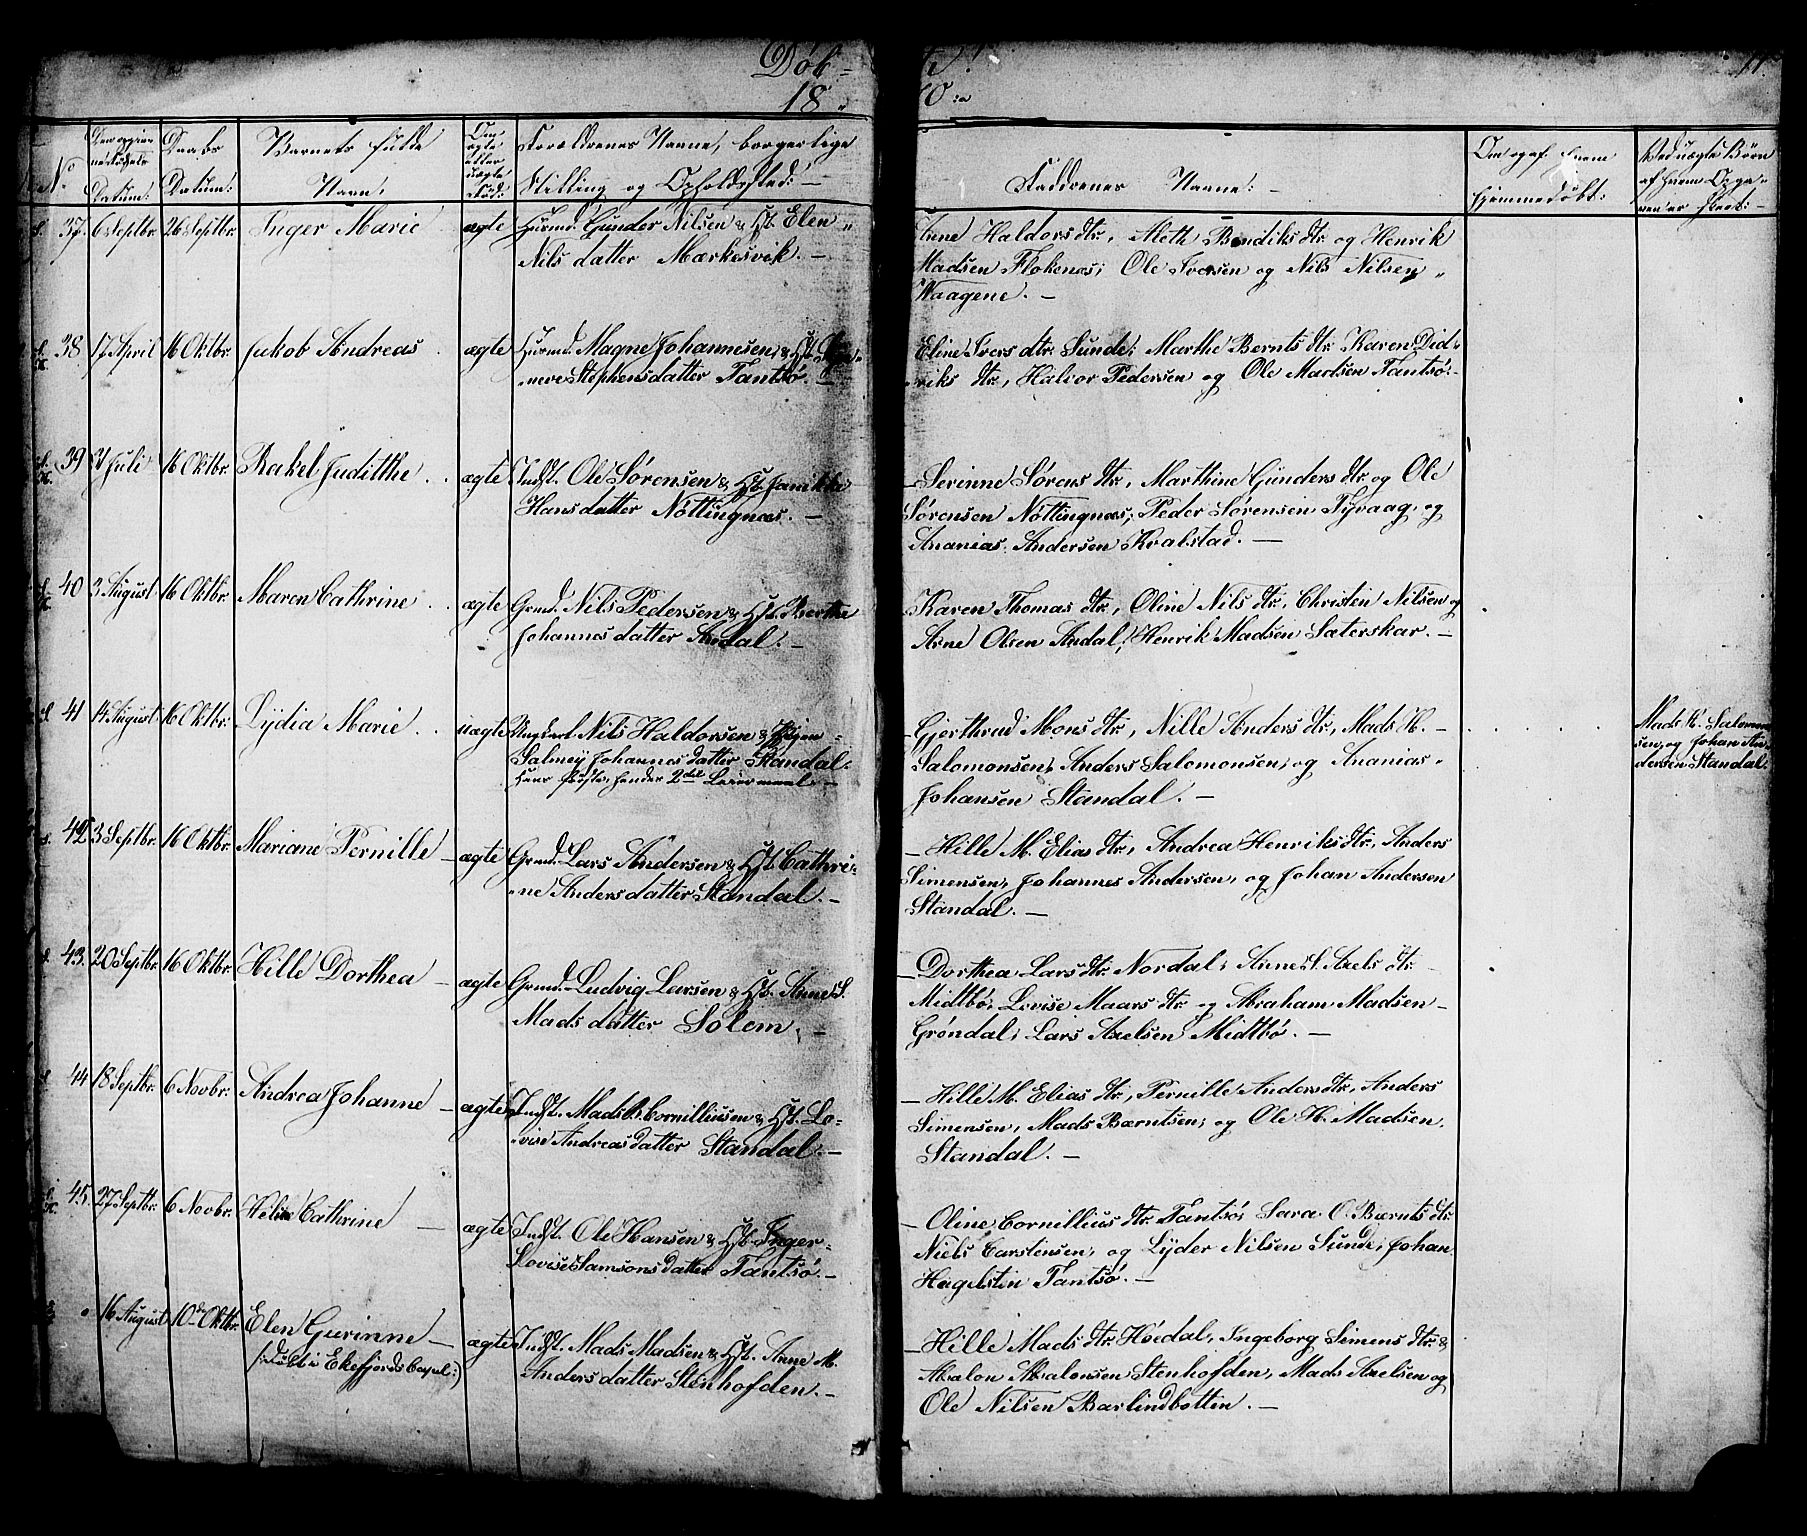 Døb-
18
te.
70.
11.
No.
Datum:
Daabs
Datum:
Barnets fulde
Navn:
Om
ægte
eller
uægte
Fød:
Forældrenes Navne, borgerlige
Stilling og Opholdssted:
Faddrenes Navne:
Om og af hvem
hjemmedøbt:
Ved uægte Børn
af hvem Opga-
ven er skeet:
37. 6 Septbr. 26 Septbr. Inger Marie ægte Huusmd. Gunder Nilsen & Hst. Elen
Nils datter Mærkesvik.
Anne Haldors dtr, Aleth Bendiks dtr og Henrik
Madsen Flokenæs, Ole Iversen og Nils Nilsen
Waagene.
38. 17 April 16 Oktbr. Jakob Andreas ægte Huusmd. Magne Johannesen & Hst.
Stephensdatter Tantsø.
Eline Ivers dtr Sunde, Marthe Bernts dtr Karen Did-
riks dtr, Halvor Pedersen og Ole Madsen Tantsø.
39 Juli 16 Oktbr. Rakel Judithe ægte Indst. Ole Sørensen & Hst. Janikke
Hansdatter Nøttingnæs.
Serinne Sørens dtr, Marthine Gunders dtr og Ole
Sørensen Nøttingnæs, Peder Sørensen Tyvaag, og
Ananias Andersen Kvalstad.
40 3 August 16 Oktbr. Maren Cathrine ægte Grmd. Nils Pedersen & Hst. Berthe
Johannes datter Andal.
Karen Thomas dtr, Oline Nils dtr, Christen Nilsen og
Arne Olsen Andal, Henrik Madsen Sæterskar.
41 14 August 16 Oktbr. Lydia Marie uægte Ungkarl Nils Haldorsen & Pigen
Salmey Johannes datter Standal.
2det Leiermaal
Gjerthrud Mons dtr, Nille Anders dtr, Mads H.
Salomonsen, Anders Salomonsen, og Ananias
Johansen Standal.
Mads H. Salomon-
sen, og Johan An-
dersen Standal.
42 3 Septbr. 16 Oktbr. Mariane Pernille ægte Grmd. Lars Andersen & Hst. Cathri-
ne Anders datter Standal.
Hille M. Elias dtr, Andrea Henriks dtr, Anders
Simensen, Johannes Andersen, og Johan Andersen
Standal.
43. 20 Septbr. 16 Oktbr. Hille Dorthea ægte Grmd. Ludvig Larsen & Hst. Anne S.
Mads datter Solem,
Dorthea Lars dtr Nordal, Anne L. Axels dtr
Midtbø, Lovise Maars dtr og Abraham Madsen
Grøndal, Lars Axelsen Midtbø.
44 18 Septbr. 6 Novbr. Andrea Johanne ægte Indst. Mads B. Cornilliusen & Hst. Lo-
vise Andreas datter Standal.
Hille M. Elias dtr, Pernille Anders dtr, Anders
Simensen, Mads Bærntsen, og Ole H. Madsen,
Standal.
45. 27 Septbr. 6 Novbr. Cathrine ægte Indst. Ole Hansen & Hst. Inger
Lovise Samsons datter Tantsø.
Oline Cornillius dtr Tantsø, Sara O. Bærnts dtr
Niels Carstensen, og Lyder Nilsen Sunde, Johan
Hagelstin Tantsø.
16 August 10de Oktbr. Elen Gurinne ægte Indst. Mads Madsen & Hst. Anne M.
(:Døbt i Ekefjords Capel:) Anders datter Stenhofden.
Hille Mads dtr Høedal, Ingeborg Simens dtr &
Abalon Abalonsen Stenhofden, Mads Axelsen og
Ole Nilsen Barlindbotten.